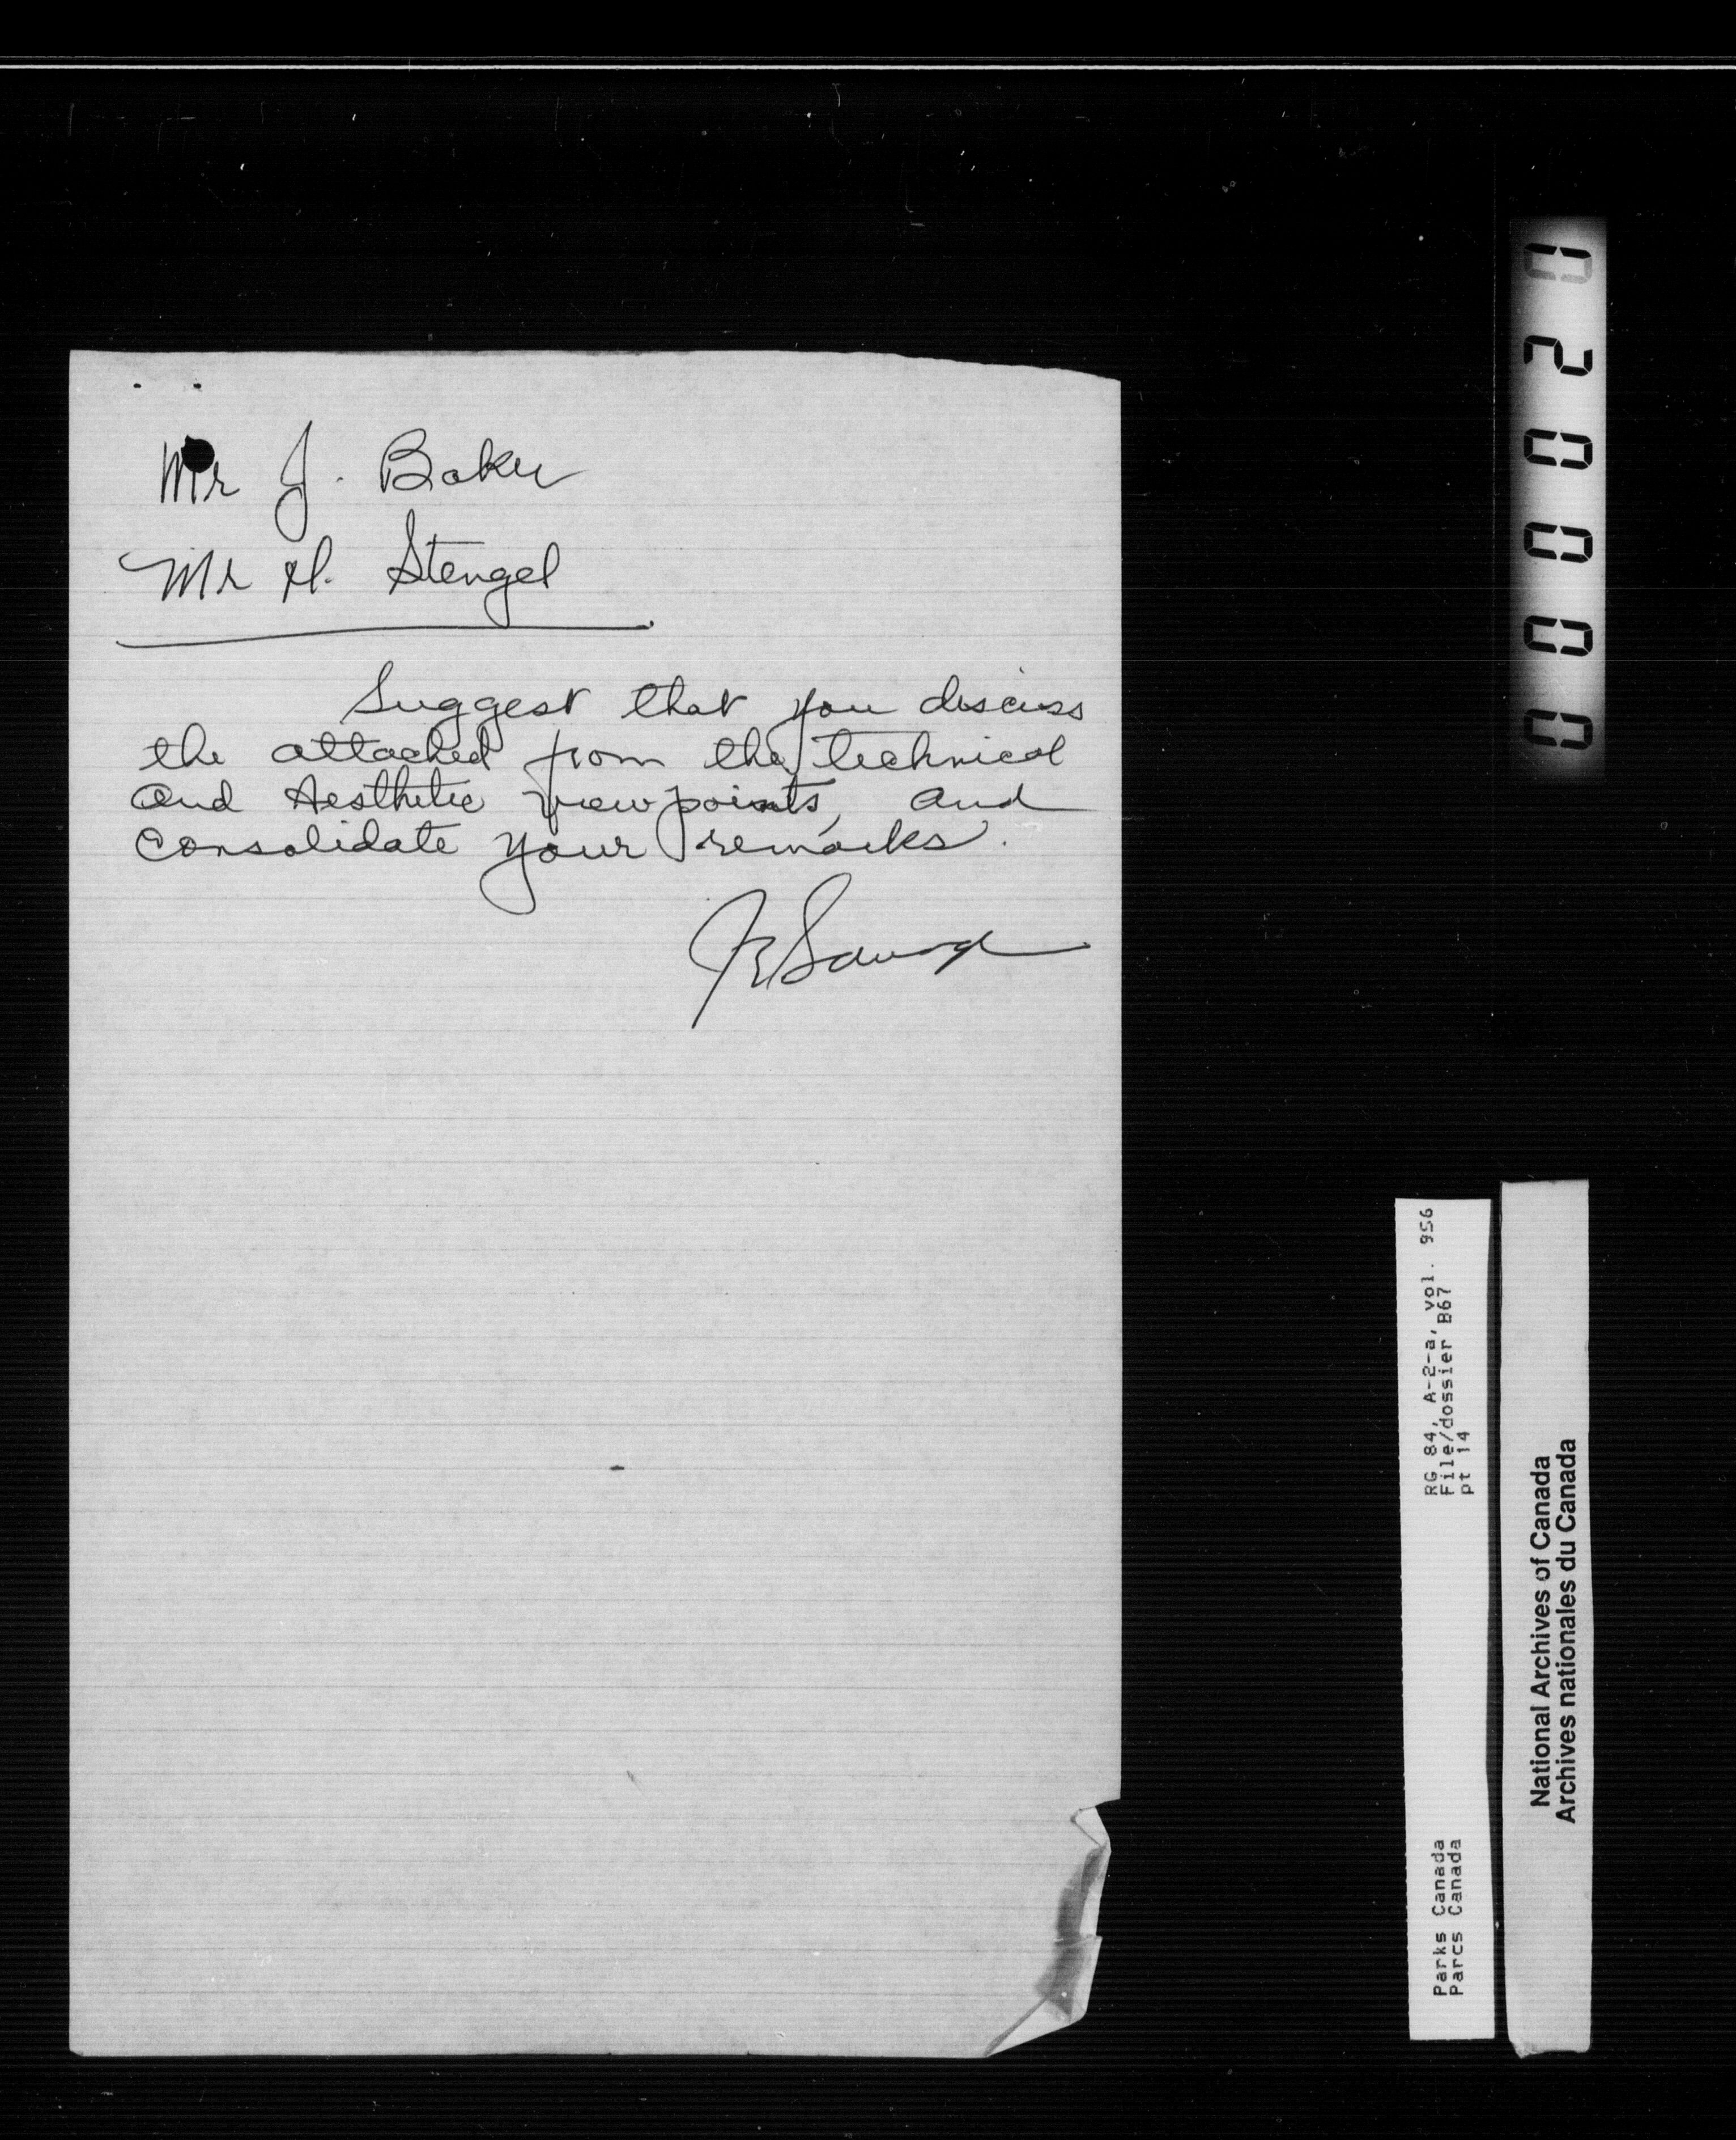 Mr J. Baker
Mr H. Stengel
Suggest that you discuss
the attached from the technical
and Aesthetic viewpoints, and
consolidate your remarks.
000020
RG 84, A-2-a, vol. 956
File/dossier B67
pt 14
Parks Canada
Parcs Canada
National Archives of Canada
Archives nationales du Canada